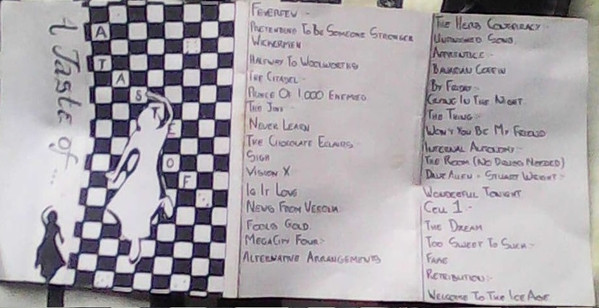 A Taste of...
A
T
A
S
T
E
O
F
Feverfew :-
Pretending To Be Someone Stronger
Wickermen
Halfway To Woolworths
The Citadel :-
Prince Of 1,000 Enemies
The Jinx :-
Never Learn
The Chocolate Eclairs :-
Sigh
Vision X :-
Is It Love
News From Verona :-
Fools Gold
MegaCity Four :-
Alternative Arrangements
The Herb Conspiracy :-
Song
Apprentice :-
Bavarian Coffin
By Friday :-
Crying In The Night
The Thing :-
Won't You Be My Friend
Infernal Autonomy :-
The Room (No Drugs Needed)
Dave Allen + Stuart Wright :-
Wonderful Tonight
Cell 1 :-
The Dream
Too Sweet To Suck :-
Fame
Retribution :-
Welcome To The Ice Age